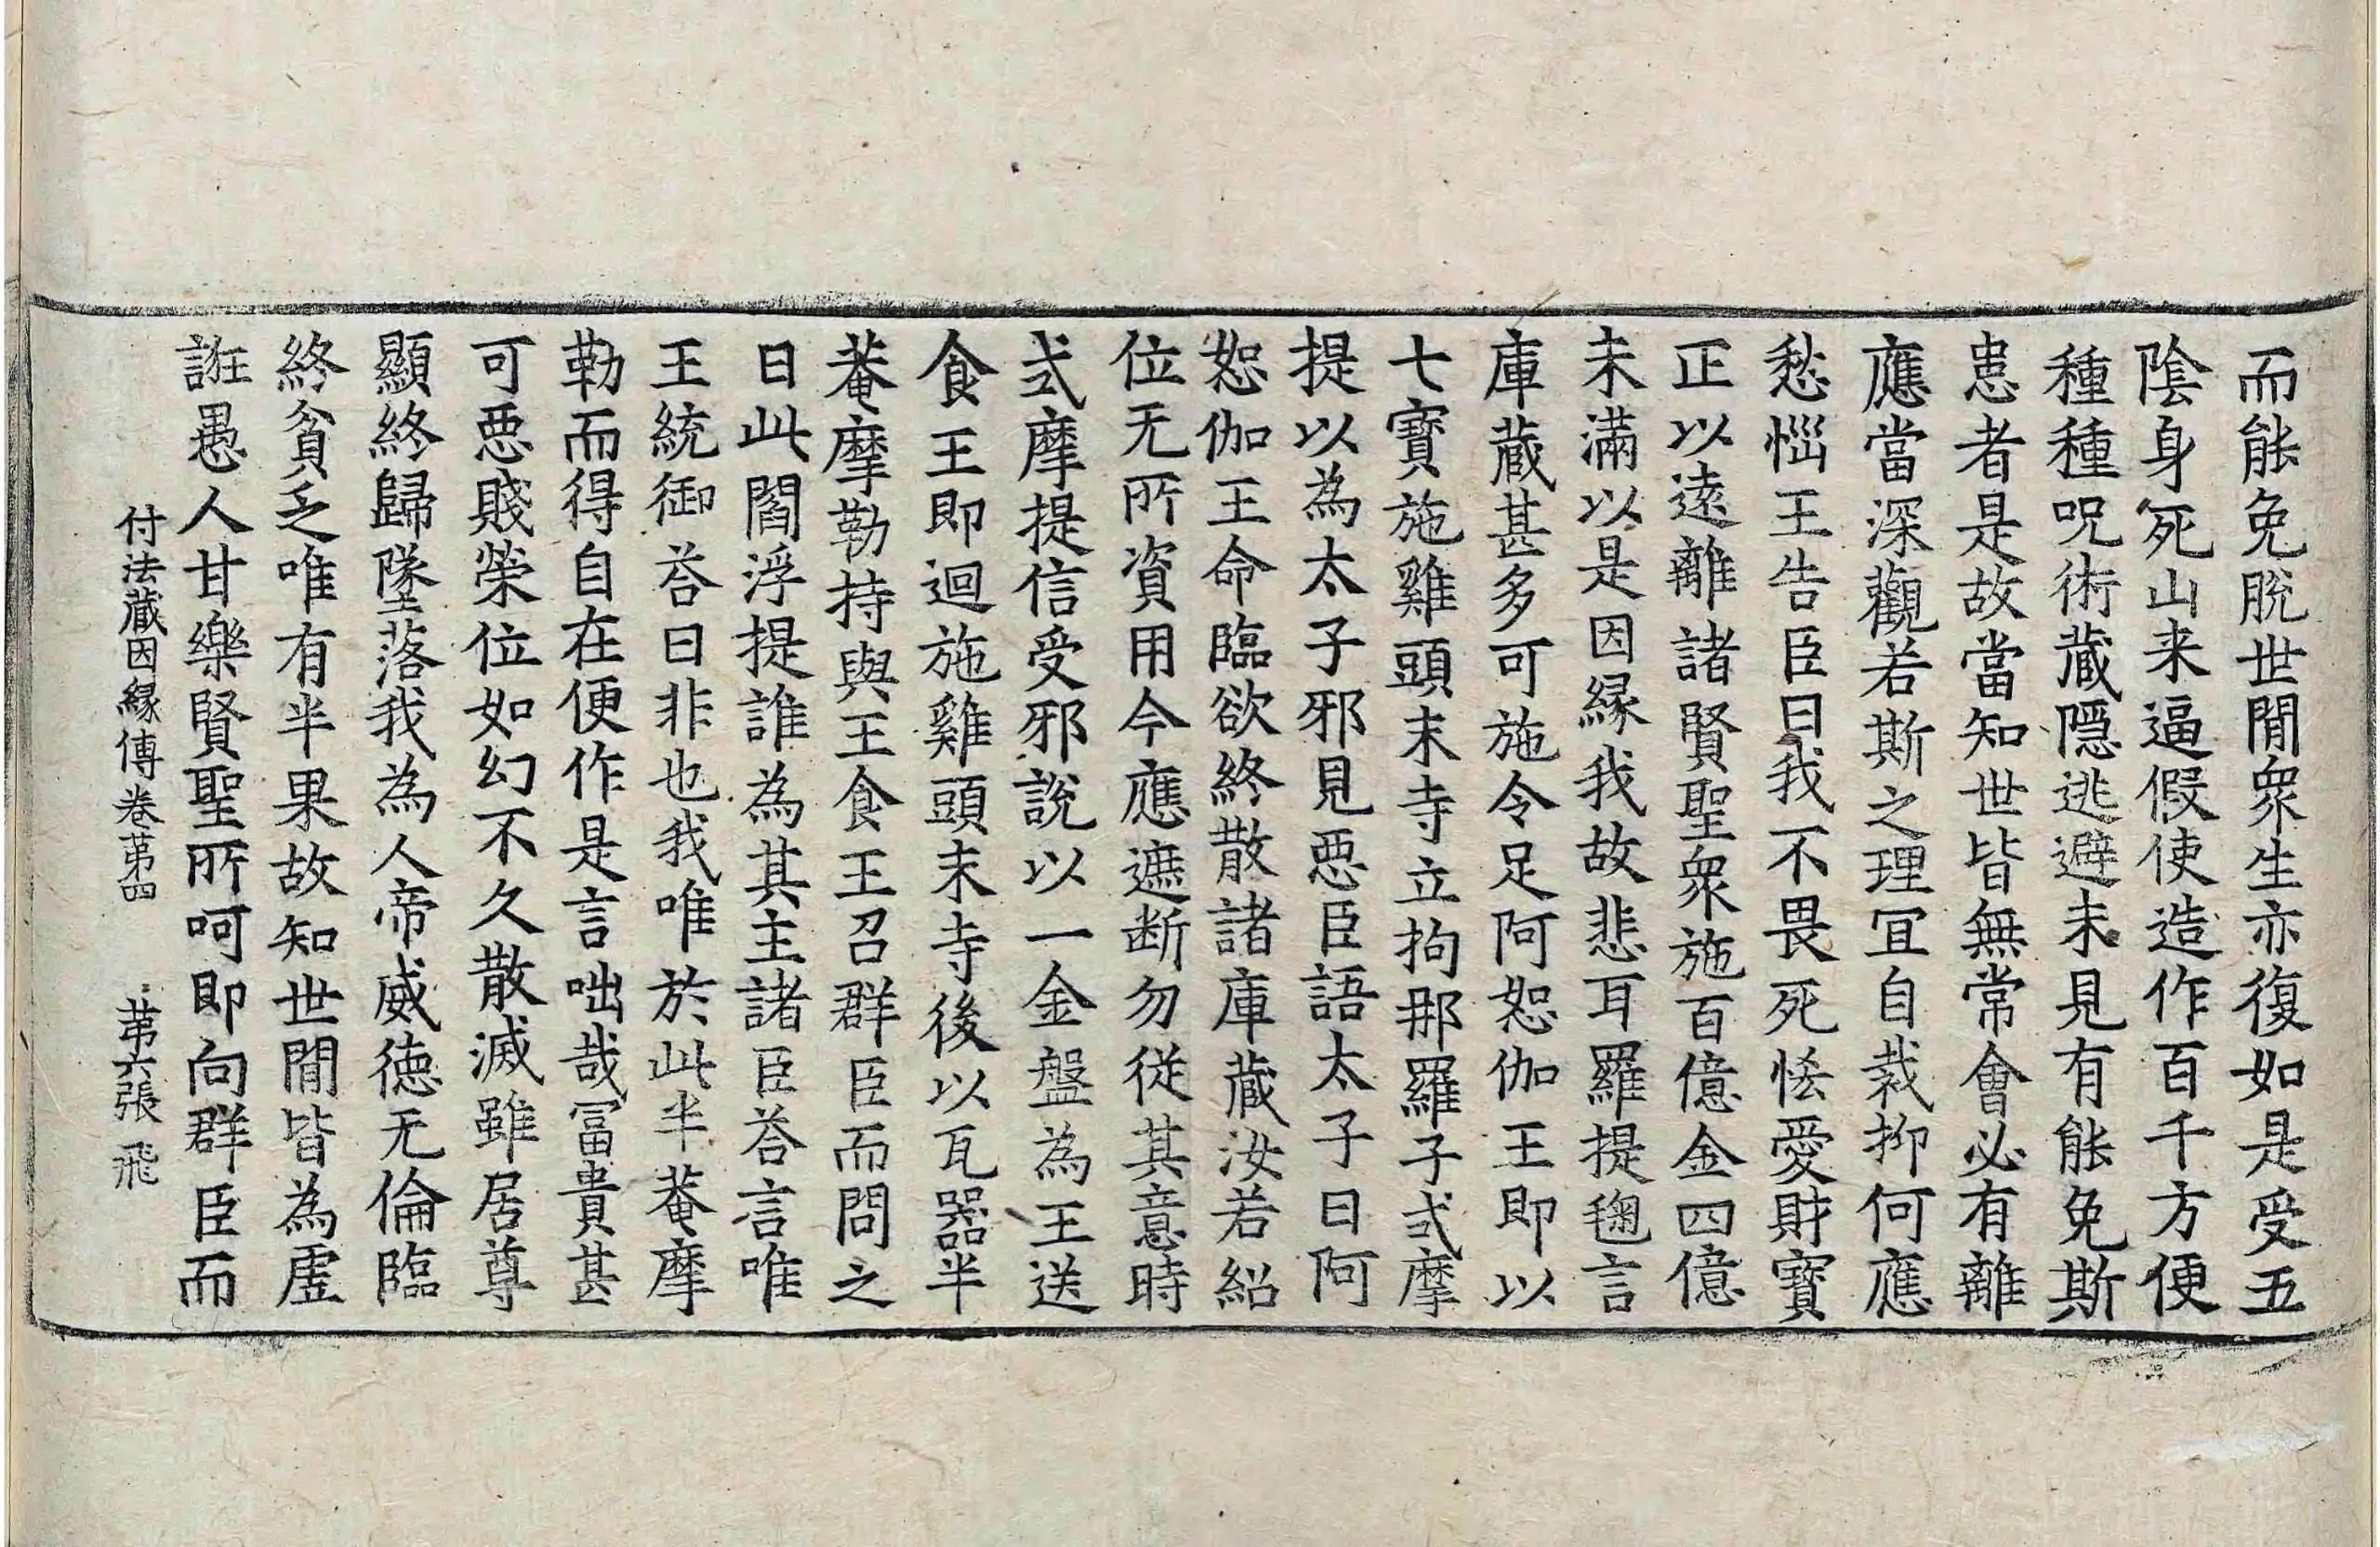 而能免脫世閒衆生亦復如是受五
陰身死山来逼假使造作百千方便
種種呪術蔵隠逃避未見有能免斯
患者是故當知世皆無常會必有離
應當深觀若斯之理冝自裁抑何應
愁惱王告臣曰我不畏死恡愛財寶
正以遠離諸賢聖衆施百億金四億
未滿以是因縁我故悲耳羅提毱言
庫蔵甚多可施令足阿恕伽王即以
七寶施雞頭末寺立拘那羅子弍摩
提以為太子邪見悪臣語太子曰阿
恕伽王命臨欲終散諸庫蔵汝若紹
位无所資用今應遮断勿従其意時
弍摩提信受邪說以一金盤為王送
食王即迴施雞頭末寺後以瓦器半
菴摩勒持與王食王召群臣而問之
曰此閻浮提誰為其主諸臣荅言唯
王統御荅曰非也我唯於此半菴摩
勒而得自在便作是言咄哉冨貴甚
可悪賤榮位如幻不久散滅雖居尊
顯終歸墜落我為人帝威徳无倫臨
終貧乏唯有半果故知世閒皆為虛
誑愚人甘樂賢聖所呵即向群臣而
付法蔵因縁傳卷苐四 苐六張 飛